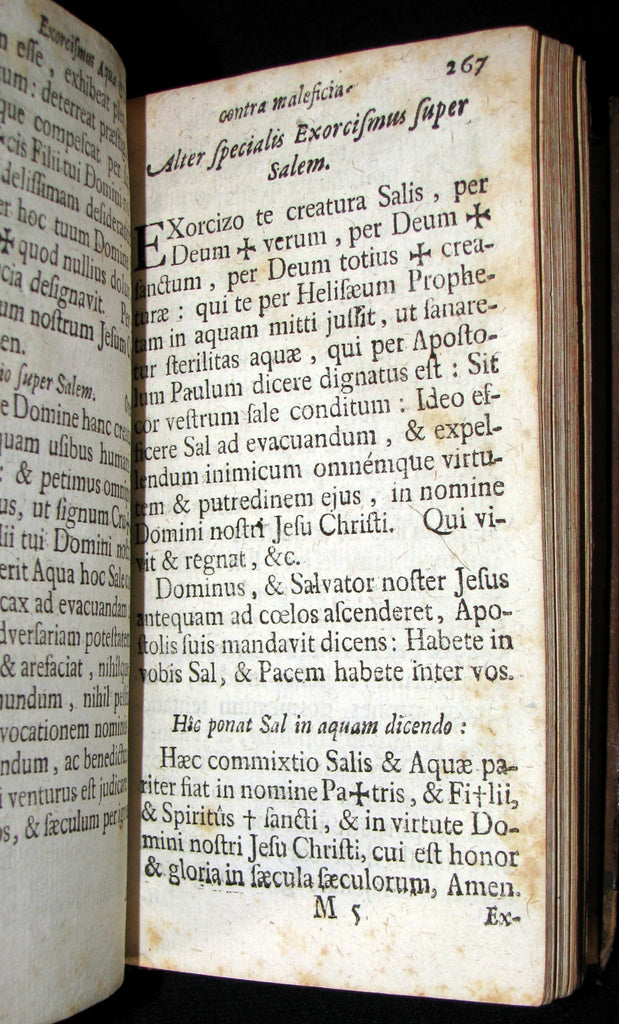 Exorcismus Aquæ
esse, exhibeat
deterreat
que compescat per
Filii tui Domini
delissimam
hoc tuum
✠ quod nullius
designavit.
um nostrum Jesum
en.
super Salem.
Domine hanc
quam usibus
& petimus
us, ut signum
lii tui Domini
erit Aqua hoc Sale
cax ad
dversariam
& arefaciat,
nihil
vocationem
ndum, ac
venturus est
& sæculum per
267
contra maleficia.
Alter specialis Exorcismus super
Salem.
EXorcizo te creatura Salis, per
Deum ✠ verum, per Deum ✠
sanctum, per Deum totius ✠ crea-
turæ: qui te per Helisæum Prophe-
tam in aquam mitti jussit, ut sanare-
tur sterilitas aquæ, qui per Aposto-
lum Paulum dicere dignatus est: Sit
cor vestrum sale conditum: Ideo ef-
ficere Sal ad evacuandum, & expel-
lendum inimicum omnémque virtu-
tem & putredinem ejus, in nomine
Domini nostri Jesu Christi. Qui vi-
vit & regnat, &c.
Dominus, & Salvator noster Jesus
antequam ad cœlos ascenderet, Apo-
stolis suis mandavit dicens: Habete in
vobis Sal, & Pacem habete inter vos.
Hic ponat Sal in aquam dicendo:
Hæc commixtio Salis & Aquæ pa-
riter fiat in nomine Pa✠tris, & Fi†lii,
& Spiritûs † sancti, & in virtute Do-
mini nostri Jesu Christi, cui est honor
& gloria in sæcula sæculorum, Amen.
M 5 Ex-